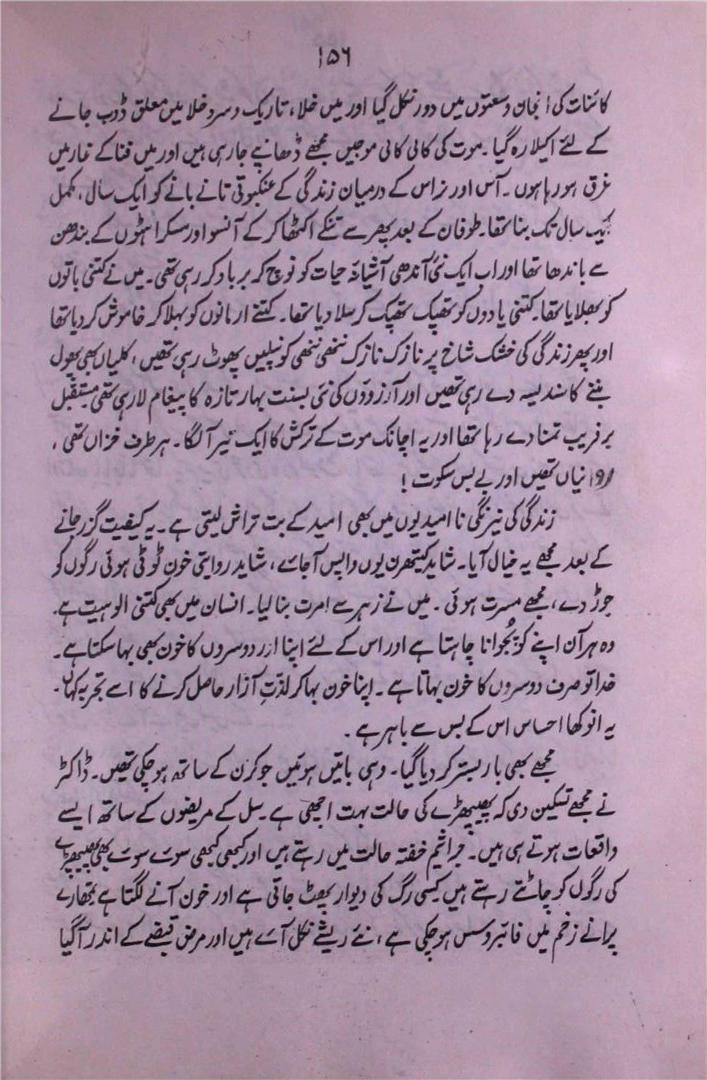 ۱۵۶
کائنات کی انجان وسعتوں میں دور نکل گیا اور میں خلا، تاریک و سرد خلا میں معلق ڈوب جانے
کے لئے اکیلا رہ گیا۔ موت کی کالی کالی موجیں مجھے ڈھانپے جا رہی ہیں اور میں فنا کے غار میں
غرق ہو رہا ہوں۔ آس اور نراس کے درمیان زندگی کے عنکبوتی تانے بانے کو ایک سال، مکمل
ایک سال تک بنا تھا۔ طوفان کے بعد پھر سے تنکے اکٹھا کر کے آنسو اور مسکراہٹوں کے بندھن
سے باندھا تھا اور اب ایک نئی آندھی آشیانۂ حیات کو نوچ کر برباد کر رہی تھی۔ میں نے کتنی باتوں
کو بھلایا تھا۔ کتنی یادوں کو تھپک تھپک کر سلا دیا تھا۔ کتنے ارمانوں کو بہلا کر خاموش کر دیا تھا
اور پھر زندگی کی خشک شاخ پر نازک نازک ننھی ننھی کونپلیں پھوٹ رہی تھیں، کلیاں بھی پھول
بننے کا سندیسہ دے رہی تھیں اور آرزوؤں کی نئی بسنت بہار تازہ کا پیغام لا رہی تھی مستقبل
پر فریب تمنا دے رہا تھا اور یہ اچانک موت کے ترکش کا ایک تیر آ لگا۔ ہر طرف خزاں تھی،
ویرانیاں تھیں اور بے بس سکوت!
زندگی کی نیرنگی نا امیدیوں میں بھی امید کے بت تراش لیتی ہے۔ یہ کیفیت گزر جانے
کے بعد مجھے یہ خیال آیا۔ شاید کیتھرن یوں واپس آ جائے، شاید روایتی خون ٹوٹی ہوئی رگوں کو
جوڑ دے، مجھے مسرت ہوئی۔ میں نے زہر سے امرت بنا لیا۔ انسان میں بھی کتنی الوہیت ہے۔
وہ ہر آن اپنے کو پُجوانا چاہتا ہے اور اس کے لئے اپنا اور دوسروں کا خون بھی بہا سکتا ہے۔
خدا تو صرف دوسروں کا خون بہاتا ہے۔ اپنا خون بہا کر لذتِ آزار حاصل کرنے کا اسے تجربہ کہاں۔
یہ انوکھا احساس اس کے بس سے باہر ہے۔
مجھے بھی بار بستر کر دیا گیا۔ وہی باتیں ہوئیں جو کرن کے ساتھ ہو چکی تھیں۔ ڈاکٹر
نے مجھے تسکین دی کہ پھیپھڑے کی حالت بہت اچھی ہے۔ سل کے مریضوں کے ساتھ ایسے
واقعات ہوتے ہی ہیں۔ جراثیم خفتہ حالت میں رہتے ہیں اور کبھی کبھی سوتے سوتے بھی پھیپھڑے
کی رگوں کو چاٹتے رہتے ہیں۔ کسی رگ کی دیوار پھٹ جاتی ہے اور خون آنے لگتا ہے۔ تمھارے
پرانے زخم میں فائبروسس ہو چکی ہے، نئے ریشے نکل آئے ہیں اور مرض قبضے کے اندر آ گیا